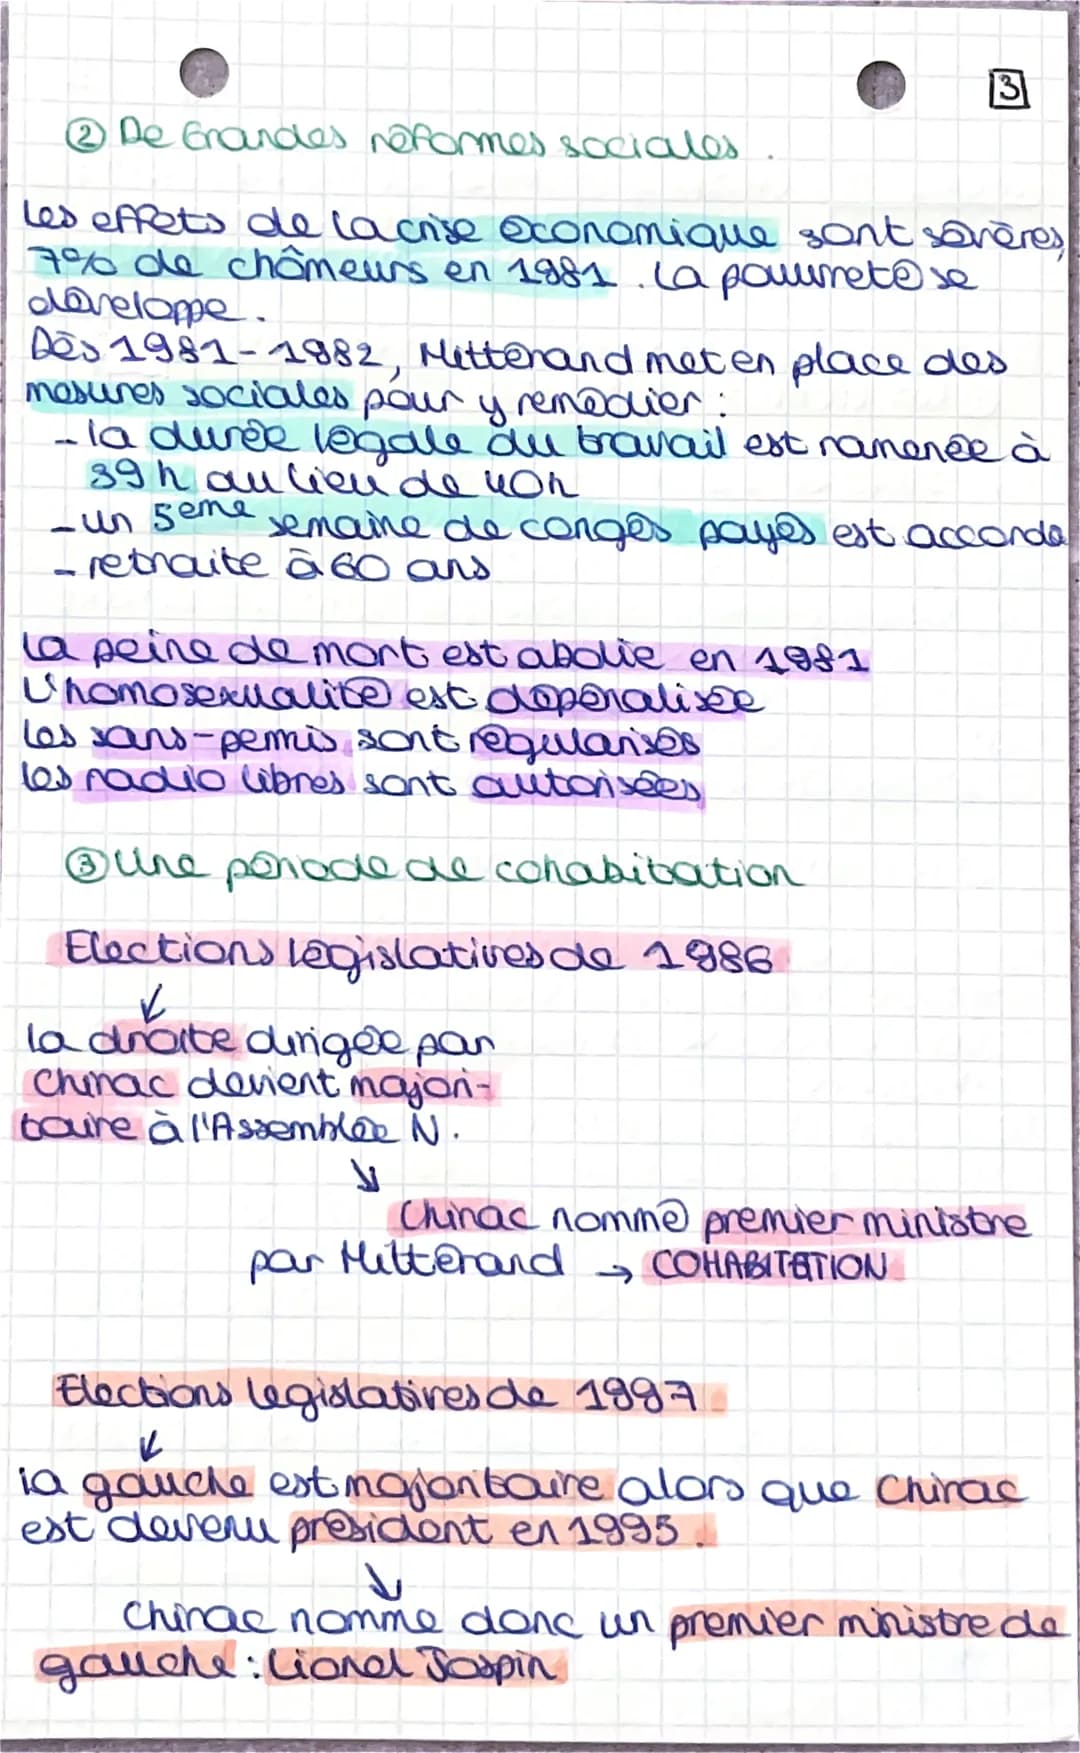 3
② De Grandes réformes sociales.
Les effets de la crise économique sont sévères,
7% de chômeurs en 1981. La pauvreté se
développe.
Dès 1981-1982, Mitterand met en place des
mesures sociales pour y remédier :
- la durée légale du travail est ramenée à
39h au lieu de 40h
- un 5ème semaine de congés payés est accordé
- retraite à 60 ans
La peine de mort est abolie en 1981
L'homosexualité est dépénalisée
Les sans-permis sont régularisés
les radio libres sont autorisées
③ Une période de cohabitation
Elections législatives de 1986
↙
la droite dirigée par
Chirac devient majori-
taire à l'Assemblée N.
↘
Chirac nommé premier ministre
par Mitterand → COHABITATION
Elections législatives de 1997
↙
la gauche est majoritaire alors que Chirac
est devenu président en 1995.
↘
Chirac nomme donc un premier ministre de
gauche : Lionel Jospin